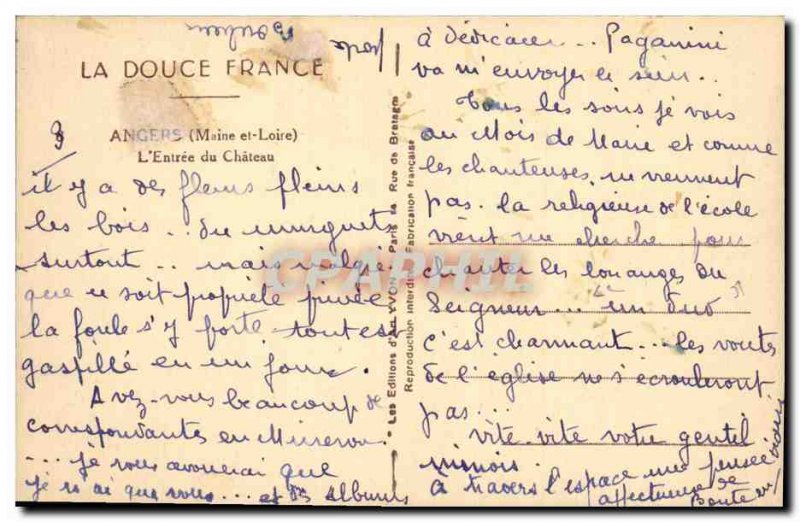 LA DOUCE FRANCE
ANGERS (Maine-et-Loire)
L'Entrée du Château
3
il y a des fleurs pleins
les bois.. du muguet
surtout.. mais malgré
que ce soit propriété privée
la foule s'y porte tout est
gaspillé en un jour.
Avez-vous beaucoup de
correspondantes en Minerva
... je vous avouerai que
je n'ai que vous... et des Albums
Les Editions d'Art YVON, Paris, Rue de Bretagne
Reproduction interdite Fabrication française
CPAPHIL
à dédicacer... Paganini
va m'envoyer le sien..
Tous les soirs je vois
au Mois de Marie et comme
les chanteuses ne viennent
pas. la religieuse de l'école
vient me cherche pour
chanter les louanges du
Seigneur... "un duo"
c'est charmant... les voutes
de l'église ne s'écrouleront
pas...
vite. vite votre gentil
minois.
à travers l'espace une pensée
affectueuse de